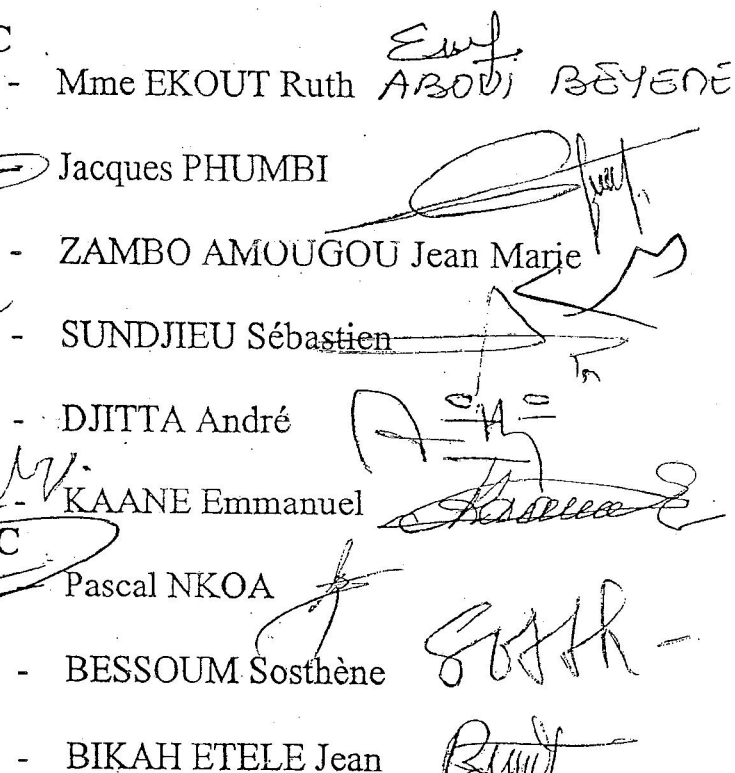 C
- Mme EKOUT Ruth ABOUI BEYENE
- Jacques PHUMBI
- ZAMBO AMOUGOU Jean Marie
- SUNDJIEU Sébastien
- DJITTA André
- KAANE Emmanuel
C
- Pascal NKOA
- BESSOUM Sosthène
- BIKAH ETELE Jean